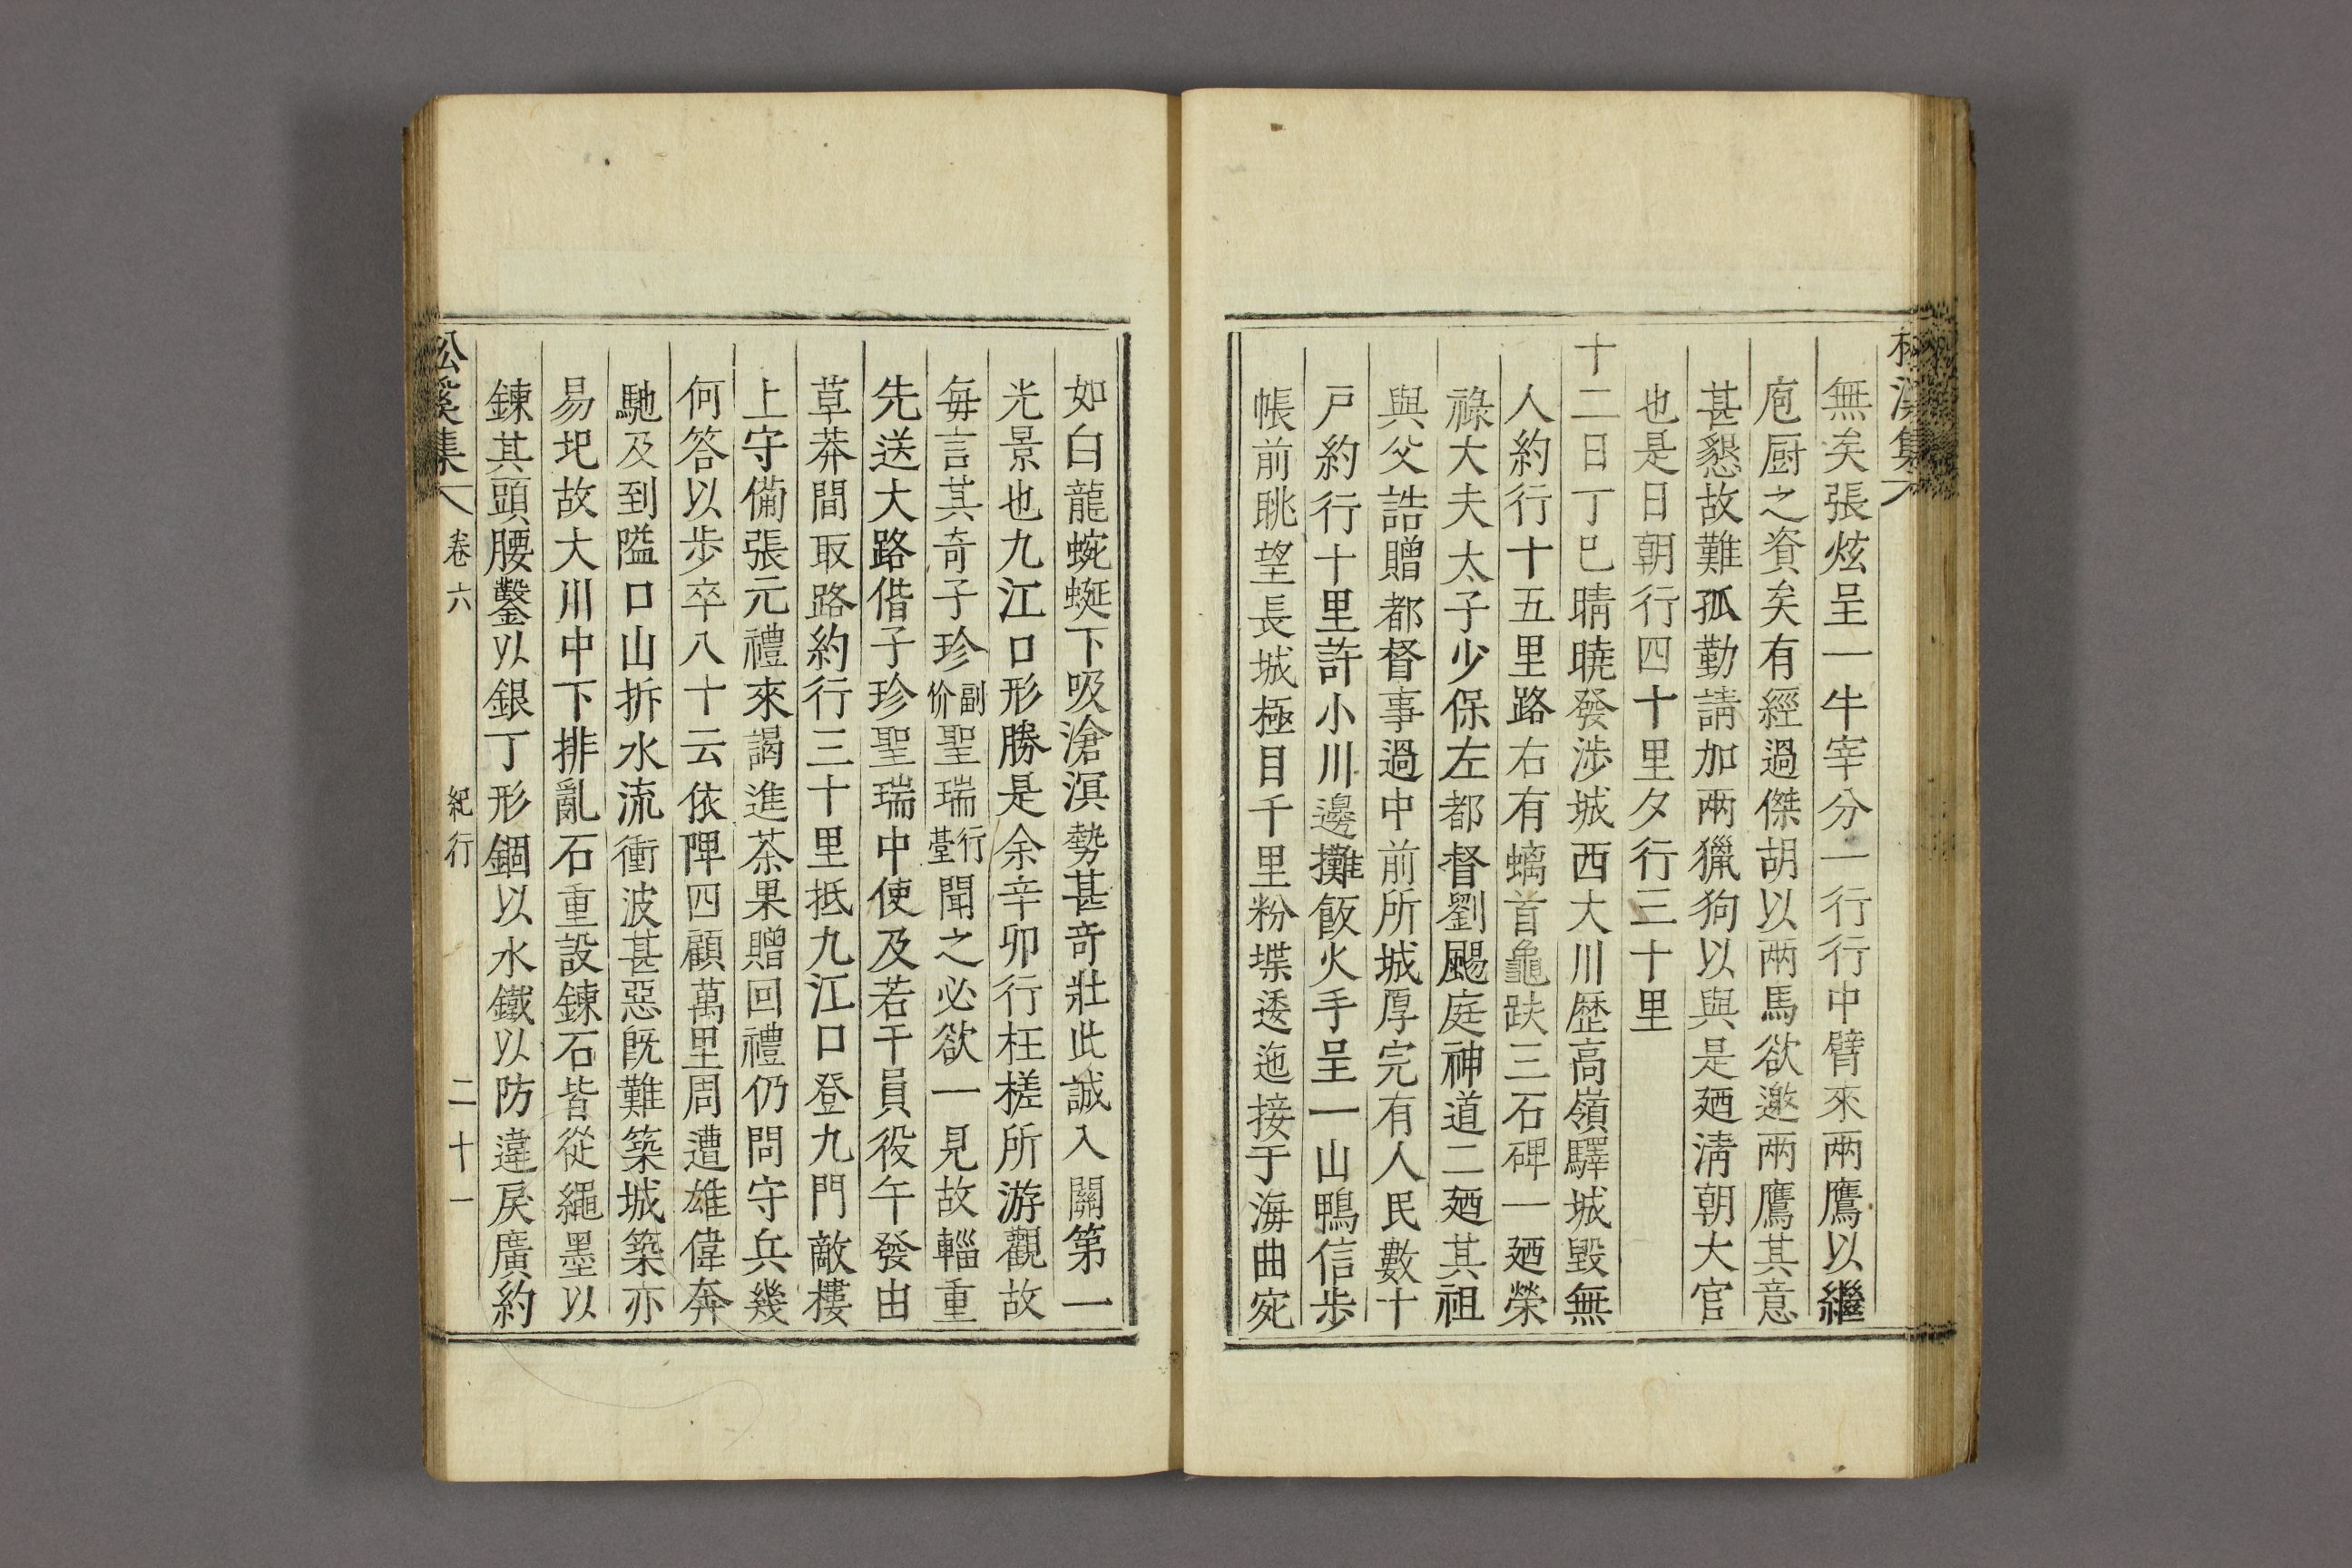 無矣張炫呈一牛宰分一行行中臂來兩鷹以繼
庖厨之資矣有經過傑胡以兩馬欲邀兩鷹其意
甚懇故難孤勤請加兩獵狗以與是廼淸朝大官
也是日朝行四十里夕行三十里
十二日丁巳晴曉發涉城西大川歷高嶺驛城毀無
人約行十五里路右有螭首龜趺三石碑一廼榮
祿大夫太子少保左都督劉颺庭神道二廼其祖
與父誥贈都督事過中前所城厚完有人民數十
戶約行十里許小川邊攤飯火手呈一山鴨信步
帳前眺望長城極目千里粉堞逶迤接于海曲宛
如白龍蜿蜒下吸滄溟勢甚奇壯此誠入關第一
光景也九江口形勝是余辛卯行枉槎所游觀故
每言其奇子珍副价聖瑞行臺聞之必欲一見故輜重
先送大路偕子珍聖瑞中使及若干員役午發由
草莽間取路約行三十里抵九江口登九門敵樓
上守備張元禮來謁進茶果贈回禮仍問守兵幾
何答以步卒八十云依陴四顧萬里周遭雄偉奔
馳及到隘口山拆水流衝波甚惡旣難築城築亦
易圯故大川中下排亂石重設鍊石皆從繩墨以
鍊其頭腰鑿以銀丁形錮以水鐵以防違戾廣約
松溪集 卷六 紀行 二十一